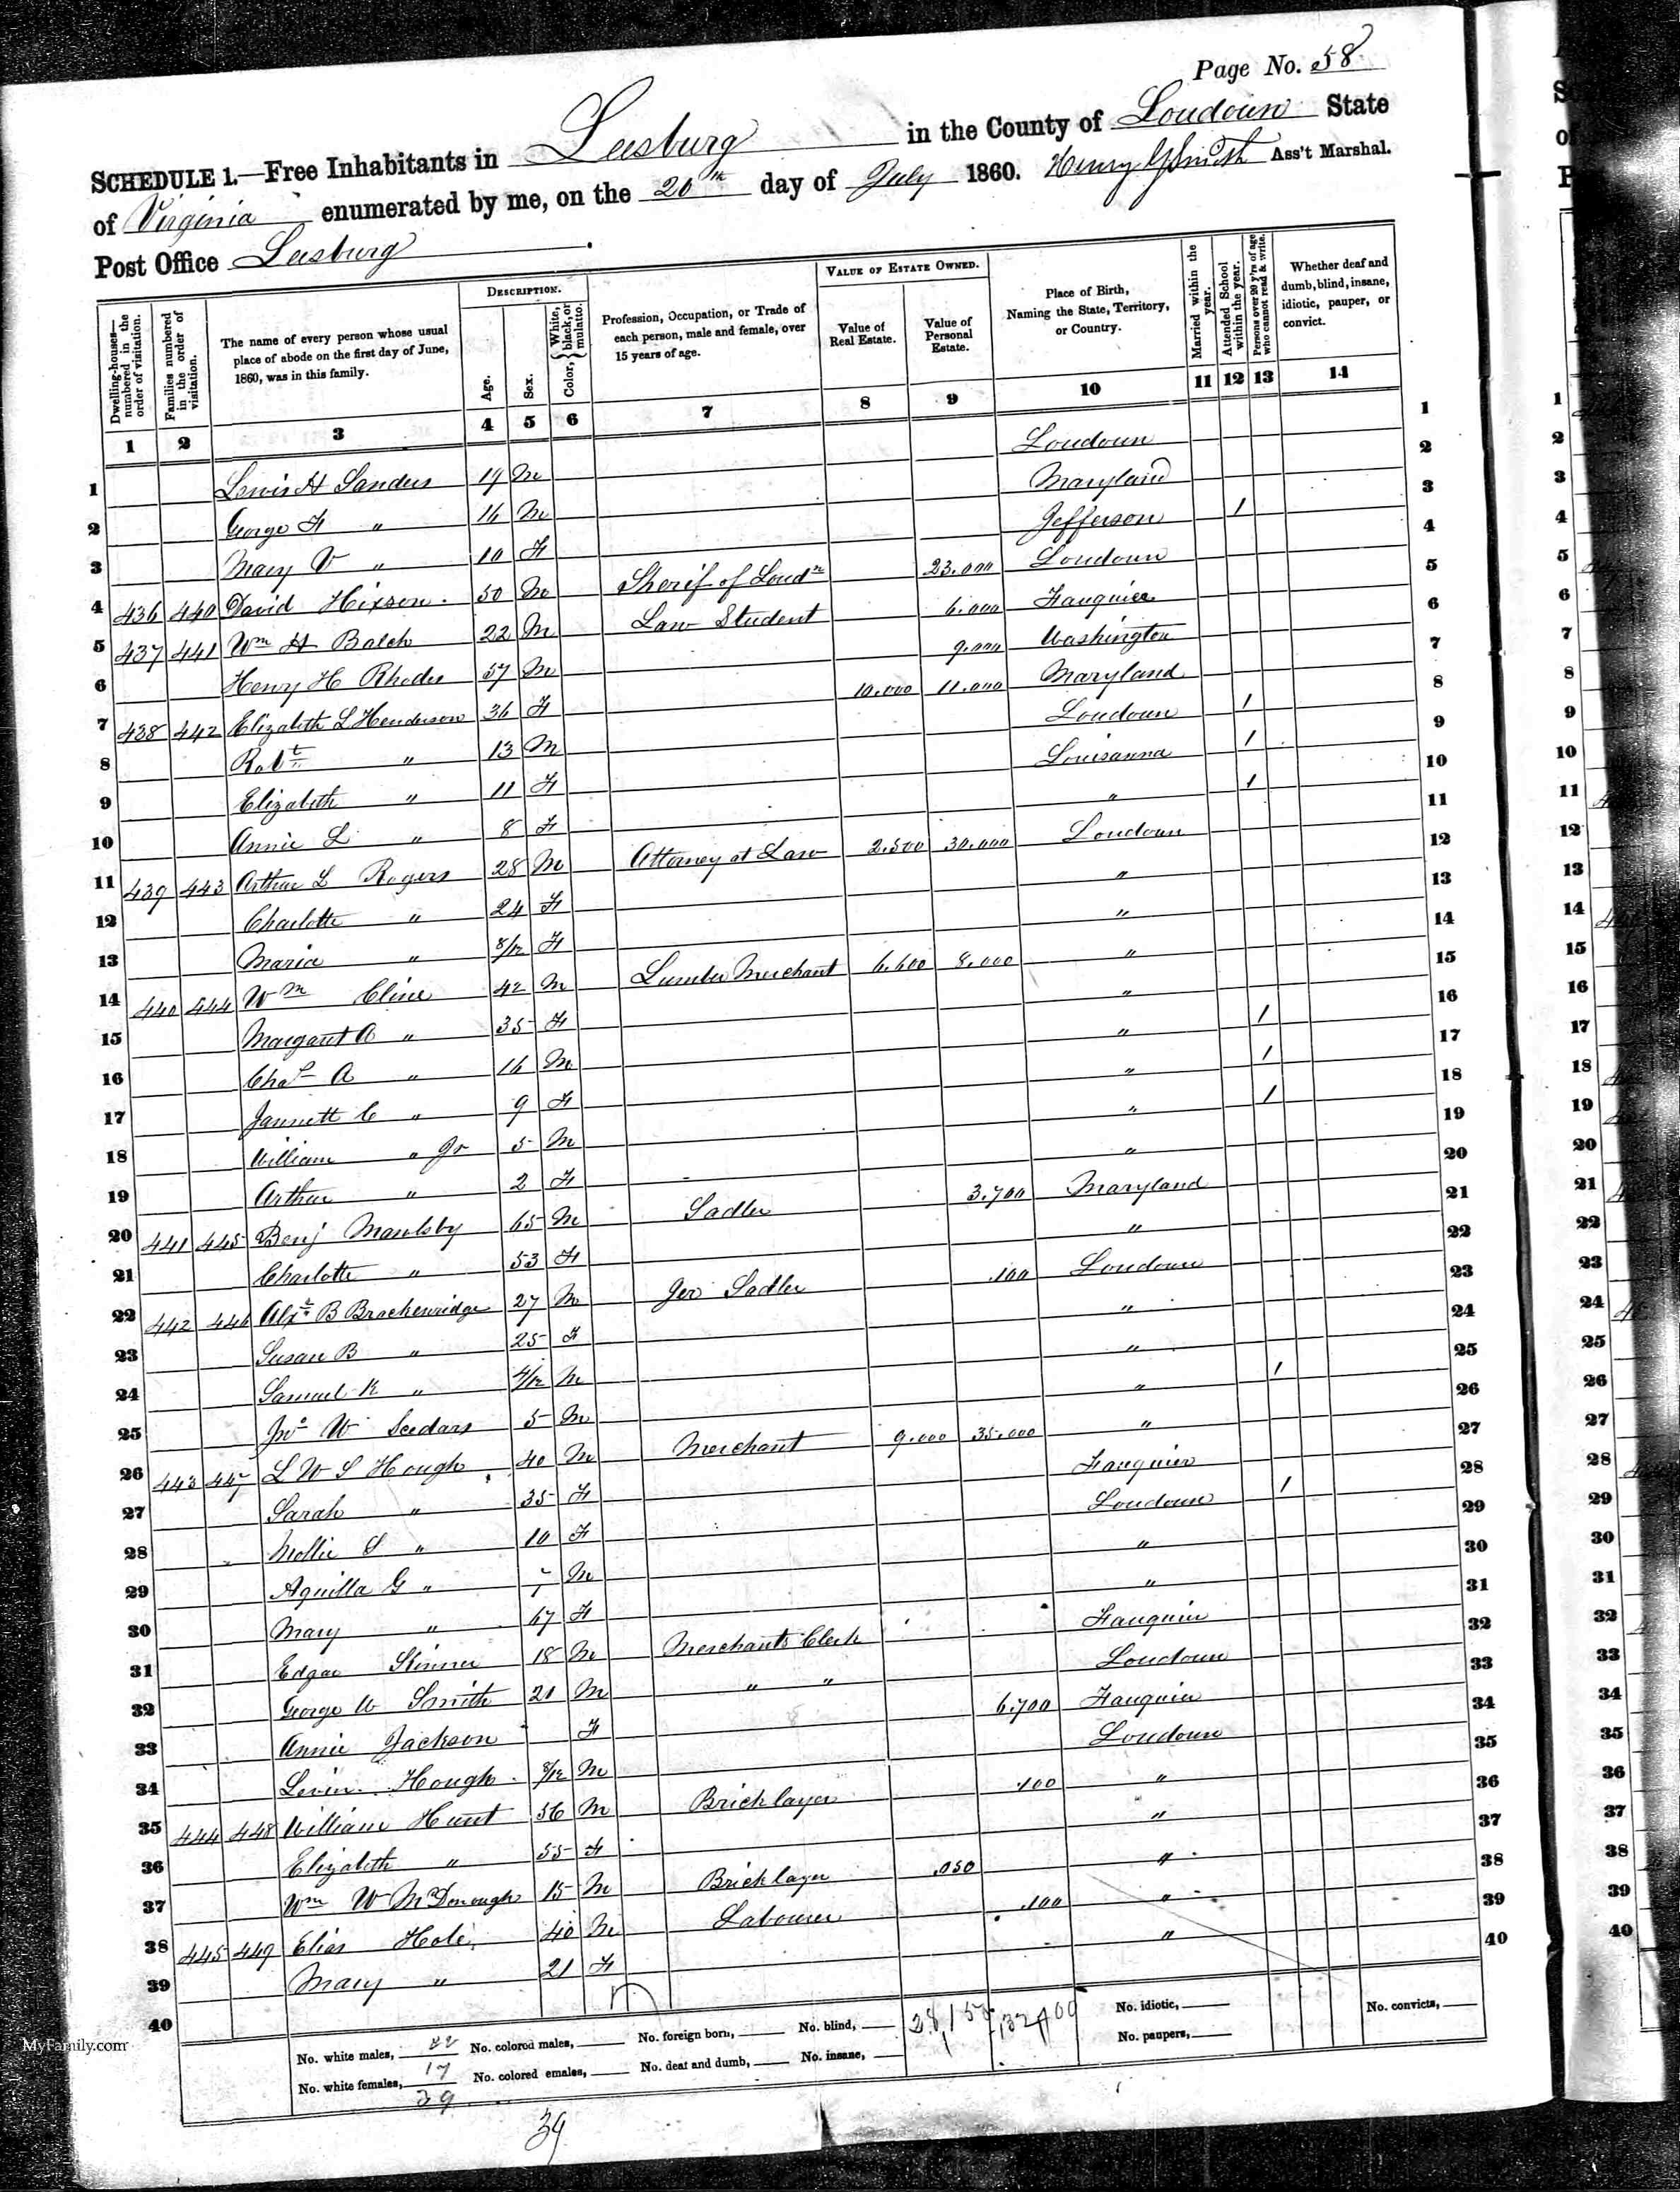 Page No. 58
SCHEDULE 1.—Free Inhabitants in Leesburg in the County of Loudoun State
of Virginia enumerated by me, on the 20th day of July 1860. Henry Smith Ass't Marshal.
Post Office Leesburg.
Dwelling-houses—numbered in the order of visitation.
Families numbered in the order of visitation.
The name of every person whose usual place of abode on the first day of June, 1860, was in this family.
DESCRIPTION.
Age.
Sex.
Color, { White, black, or mulatto.
Profession, Occupation, or Trade of each person, male and female, over 15 years of age.
VALUE OF ESTATE OWNED.
Value of Real Estate.
Value of Personal Estate.
Place of Birth, Naming the State, Territory, or Country.
Married within the year.
Attended School within the year.
Persons over 20 y'rs of age who cannot read & write.
Whether deaf and dumb, blind, insane, idiotic, pauper, or convict.
1 2 3 4 5 6 7 8 9 10 11 12 13 14
1 Lewis H Sanders 19 M Loudoun 1
2 George F " 16 M Maryland 2
3 Mary V " 10 F Jefferson 1 3
4 436 440 David Hixson 50 M Sherif of Loudn 23.000 Loudoun 4
5 437 441 Wm H Balch 22 M Law Student 6.000 Fauquier 5
6 Henry H Rhodes 57 M 9.000 Washington 6
7 438 442 Elizabeth L Henderson 36 F 10.000 11.000 Maryland 7
8 Robt " 13 M Loudoun 1 8
9 Elizabeth " 11 F Louisanna 1 9
10 Annie L " 8 F " 1 10
11 439 443 Arthur L Rogers 28 M Attorney at Law 2.500 30.000 Loudoun 11
12 Charlotte " 24 F " 12
13 Maria " 8/12 F " 13
14 440 444 Wm Cline 42 M Lumber Merchant 6.600 8.000 " 14
15 Margaret A " 35 F " 15
16 Chas A " 16 M " 1 16
17 Jannett C " 9 F " 1 17
18 William " Jr 5 M " 1 18
19 Arthur " 2 F " 19
20 441 445 Benj Maulsby 65 M Sadler 3.700 Maryland 20
21 Charlotte " 53 F " 21
22 442 446 Alxr B Brackenridge 27 M Jer Sadler .100 Loudoun 22
23 Susan B " 25 F " 23
24 Samuel K " 4/12 M " 24
25 Jno W Seedars 5 M " 1 25
26 443 447 L W S Hough 40 M Merchant 9.000 35.000 " 26
27 Sarah " 35 F Fauquier 27
28 Mollie S " 10 F Loudoun 1 28
29 Aquilla G " 7 M " 29
30 Mary " 67 F " 30
31 Edgar Skinner 18 M Merchants Clerk Fauquier 31
32 George W Smith 21 M " " Loudoun 32
33 Annie Jackson F 6.700 Fauquier 33
34 Levin Hough 8/12 M Loudoun 34
35 444 448 William Hunt 56 M Bricklayer .100 " 35
36 Elizabeth " 55 F " 36
37 Wm W McDonough 15 M Bricklayer .050 " 37
38 445 449 Elias Hole 40 M Labourer .100 " 38
39 Mary " 21 F " 39
40 40
No. white males, 22 No. colored males, No. foreign born, No. blind, 28,150 132,400 No. idiotic, No. convicts,
No. white females, 17 No. colored emales, No. deaf and dumb, No. insane, No. paupers,
39
39
MyFamily.com